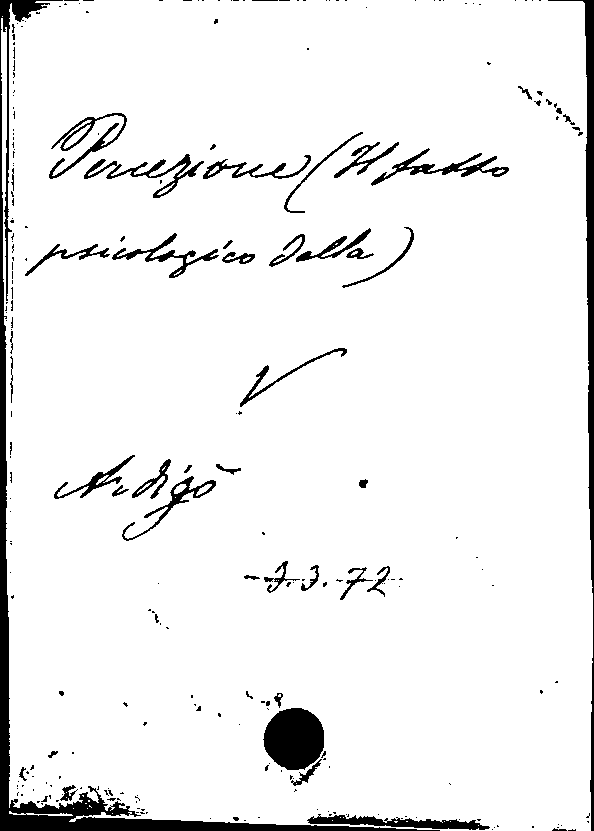 Percezione (Il fatto
psicologico della)
V
Ardigò
3.3.72